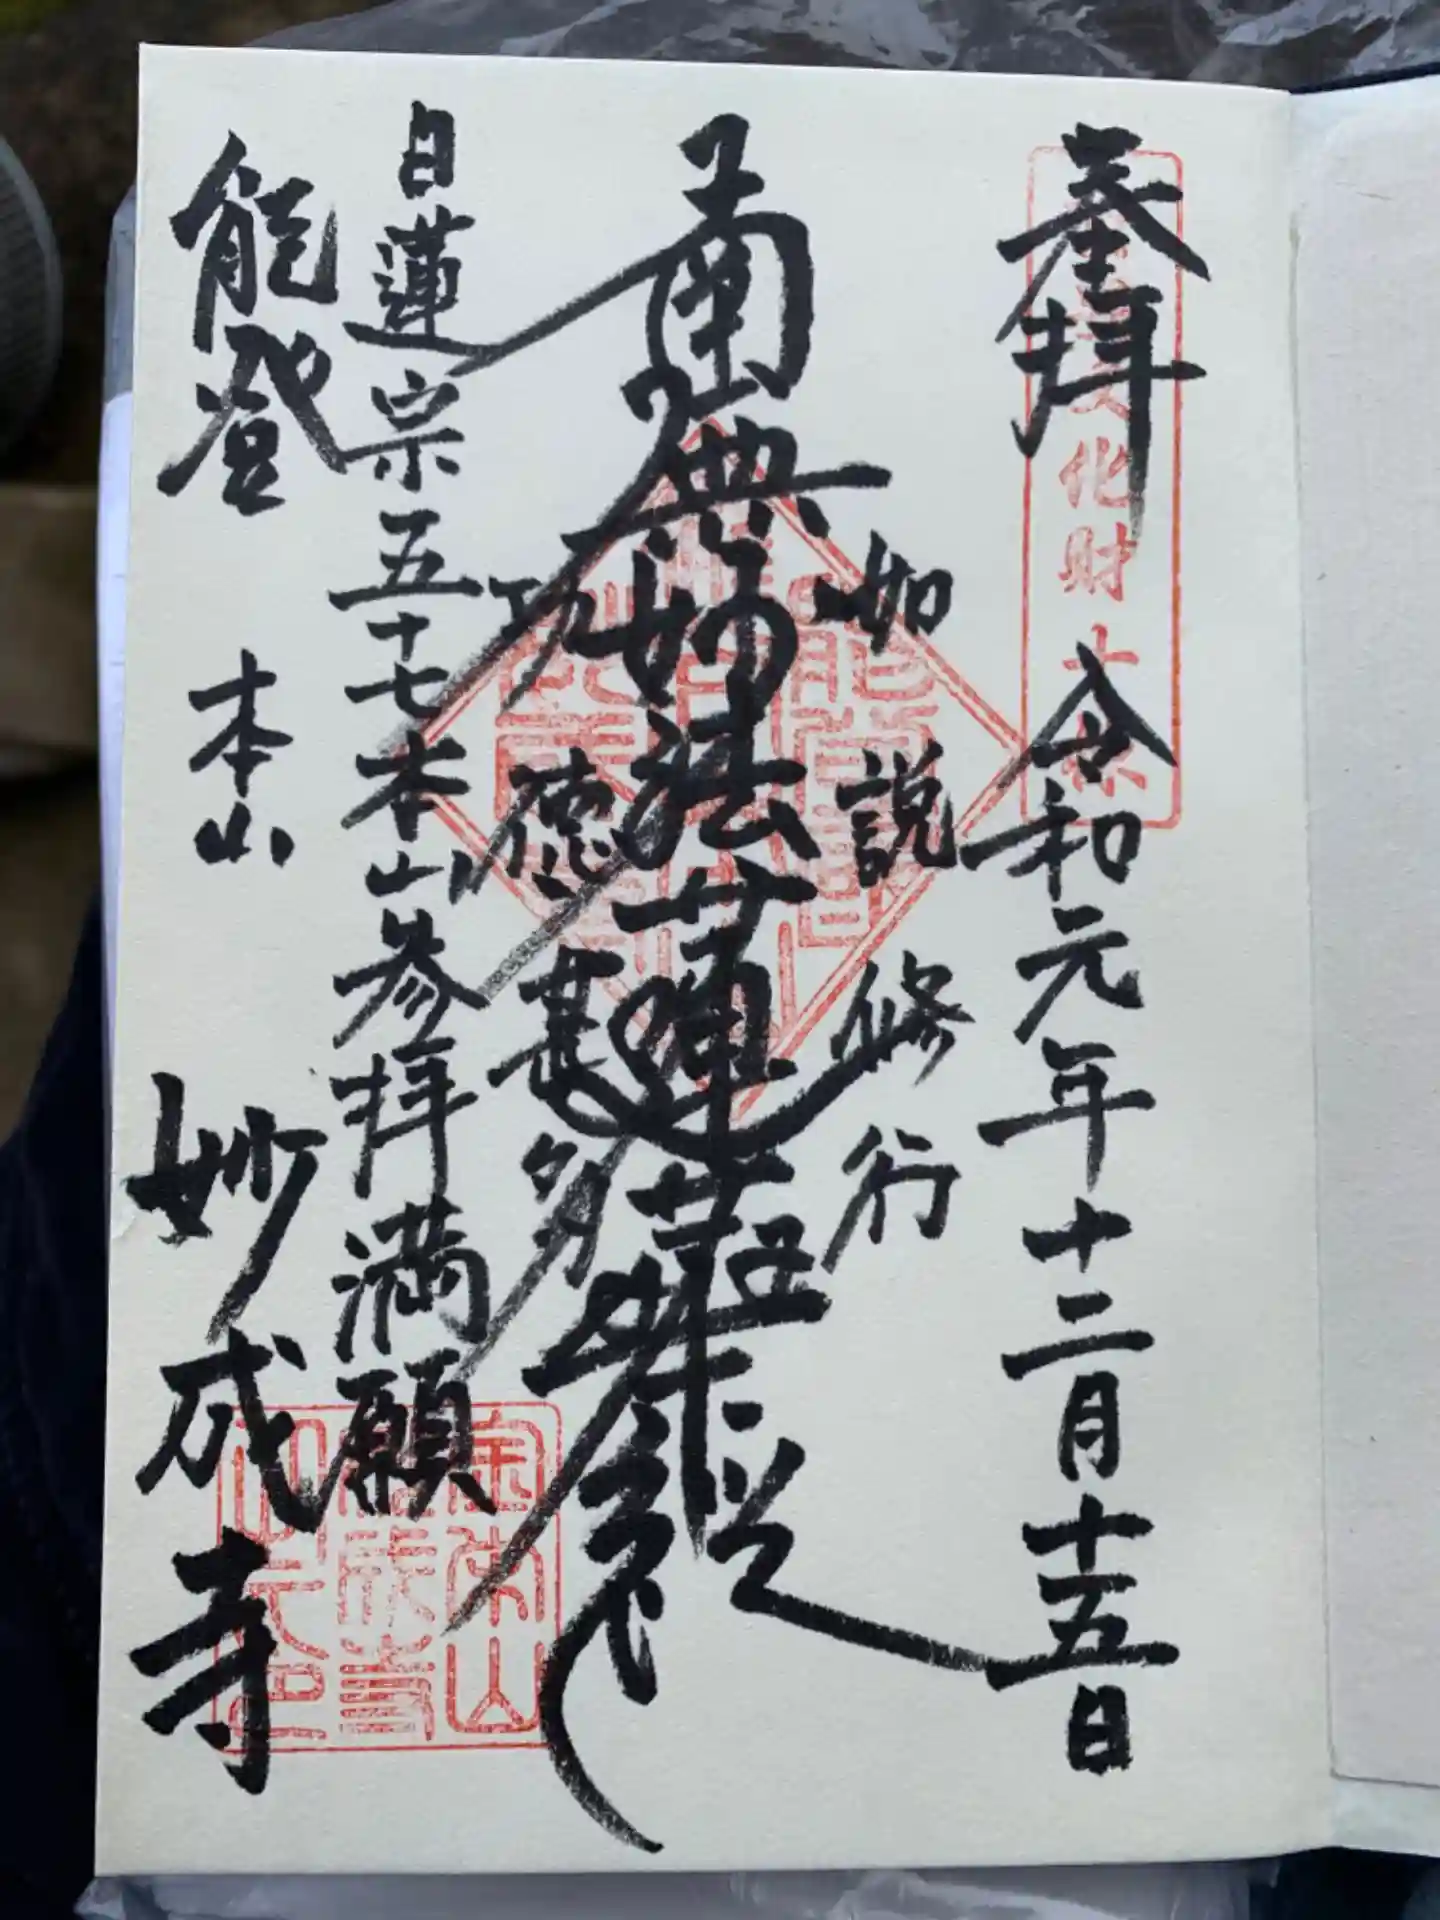 奉拝 令和元年十二月十五日
如説修行
南無妙法蓮華経
功徳甚多
日蓮宗五十七本山参拝満願
能登 本山 妙成寺
文化財